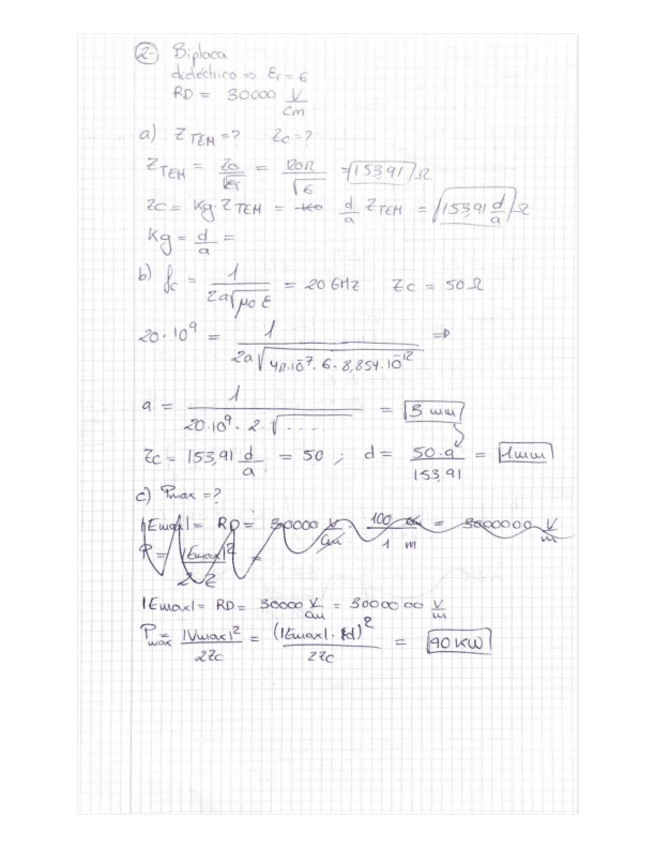 2- Biplaca
dieléctrico ⇒ εr = 6
RD = 30000 V/cm
a) Z TEM = ? Zc = ?
Z TEM = Zo/√εr = 120π/√6 = 153,91 Ω
Zc = Kg · Z TEM = d/a Z TEM = 153,91 d/a Ω
Kg = d/a =
b) fc = 1/(2a√(μo ε)) = 20 GHz Zc = 50 Ω
20·10^9 = 1/(2a√(4π·10^-7 · 6 · 8,854·10^-12)) ⇒
a = 1/(20·10^9 · 2 · √....) = 3 mm
Zc = 153,91 d/a = 50 ; d = 50·a/153,91 = 1mm
c) Pmax = ?
|Emax| = RD = 30000 V/cm 100 cm/1 m = 3000000 V/m
P = |Emax|^2/2 Z =
|Emax| = RD = 30000 V/cm = 3000000 V/m
Pmax = |Vmax|^2/2Zc = (|Emax| · d)^2/2Zc = 90 KW